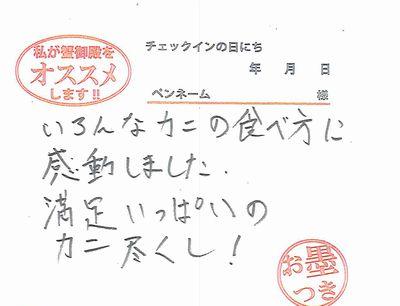 私が蟹御殿を
オススメ
します!!
チェックインの日にち
年 月 日
ペンネーム 様
いろんなカニの食べ方に
感動しました.
満足いっぱいの
カニ尽くし!
お墨
つき